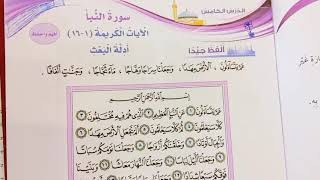 الدرس الخامس
سورة النبأ
أفهم وأحفظ
الآيات الكريمة (١-١٦)
أدلة البعث
ألفظ جيدًا
عَمَّ يَتَسَاءَلُونَ ، الْأَرْضَ مِهَادًا ، وَجَعَلْنَا سِرَاجًا وَهَّاجًا ، مَاءً ثَجَّاجًا ، وَجَنَّاتٍ أَلْفَافًا .
بِسْمِ اللَّهِ الرَّحْمَنِ الرَّحِيمِ
عَمَّ يَتَسَاءَلُونَ ۝١ عَنِ النَّبَإِ الْعَظِيمِ ۝٢ الَّذِي هُمْ فِيهِ مُخْتَلِفُونَ ۝٣
كَلَّا سَيَعْلَمُونَ ۝٤ ثُمَّ كَلَّا سَيَعْلَمُونَ ۝٥ أَلَمْ نَجْعَلِ الْأَرْضَ مِهَادًا ۝٦
وَالْجِبَالَ أَوْتَادًا ۝٧ وَخَلَقْنَاكُمْ أَزْوَاجًا ۝٨ وَجَعَلْنَا نَوْمَكُمْ سُبَاتًا ۝٩
وَجَعَلْنَا اللَّيْلَ لِبَاسًا ۝١٠ وَجَعَلْنَا النَّهَارَ مَعَاشًا ۝١١ وَبَنَيْنَا
فَوْقَكُمْ سَبْعًا شِدَادًا ۝١٢